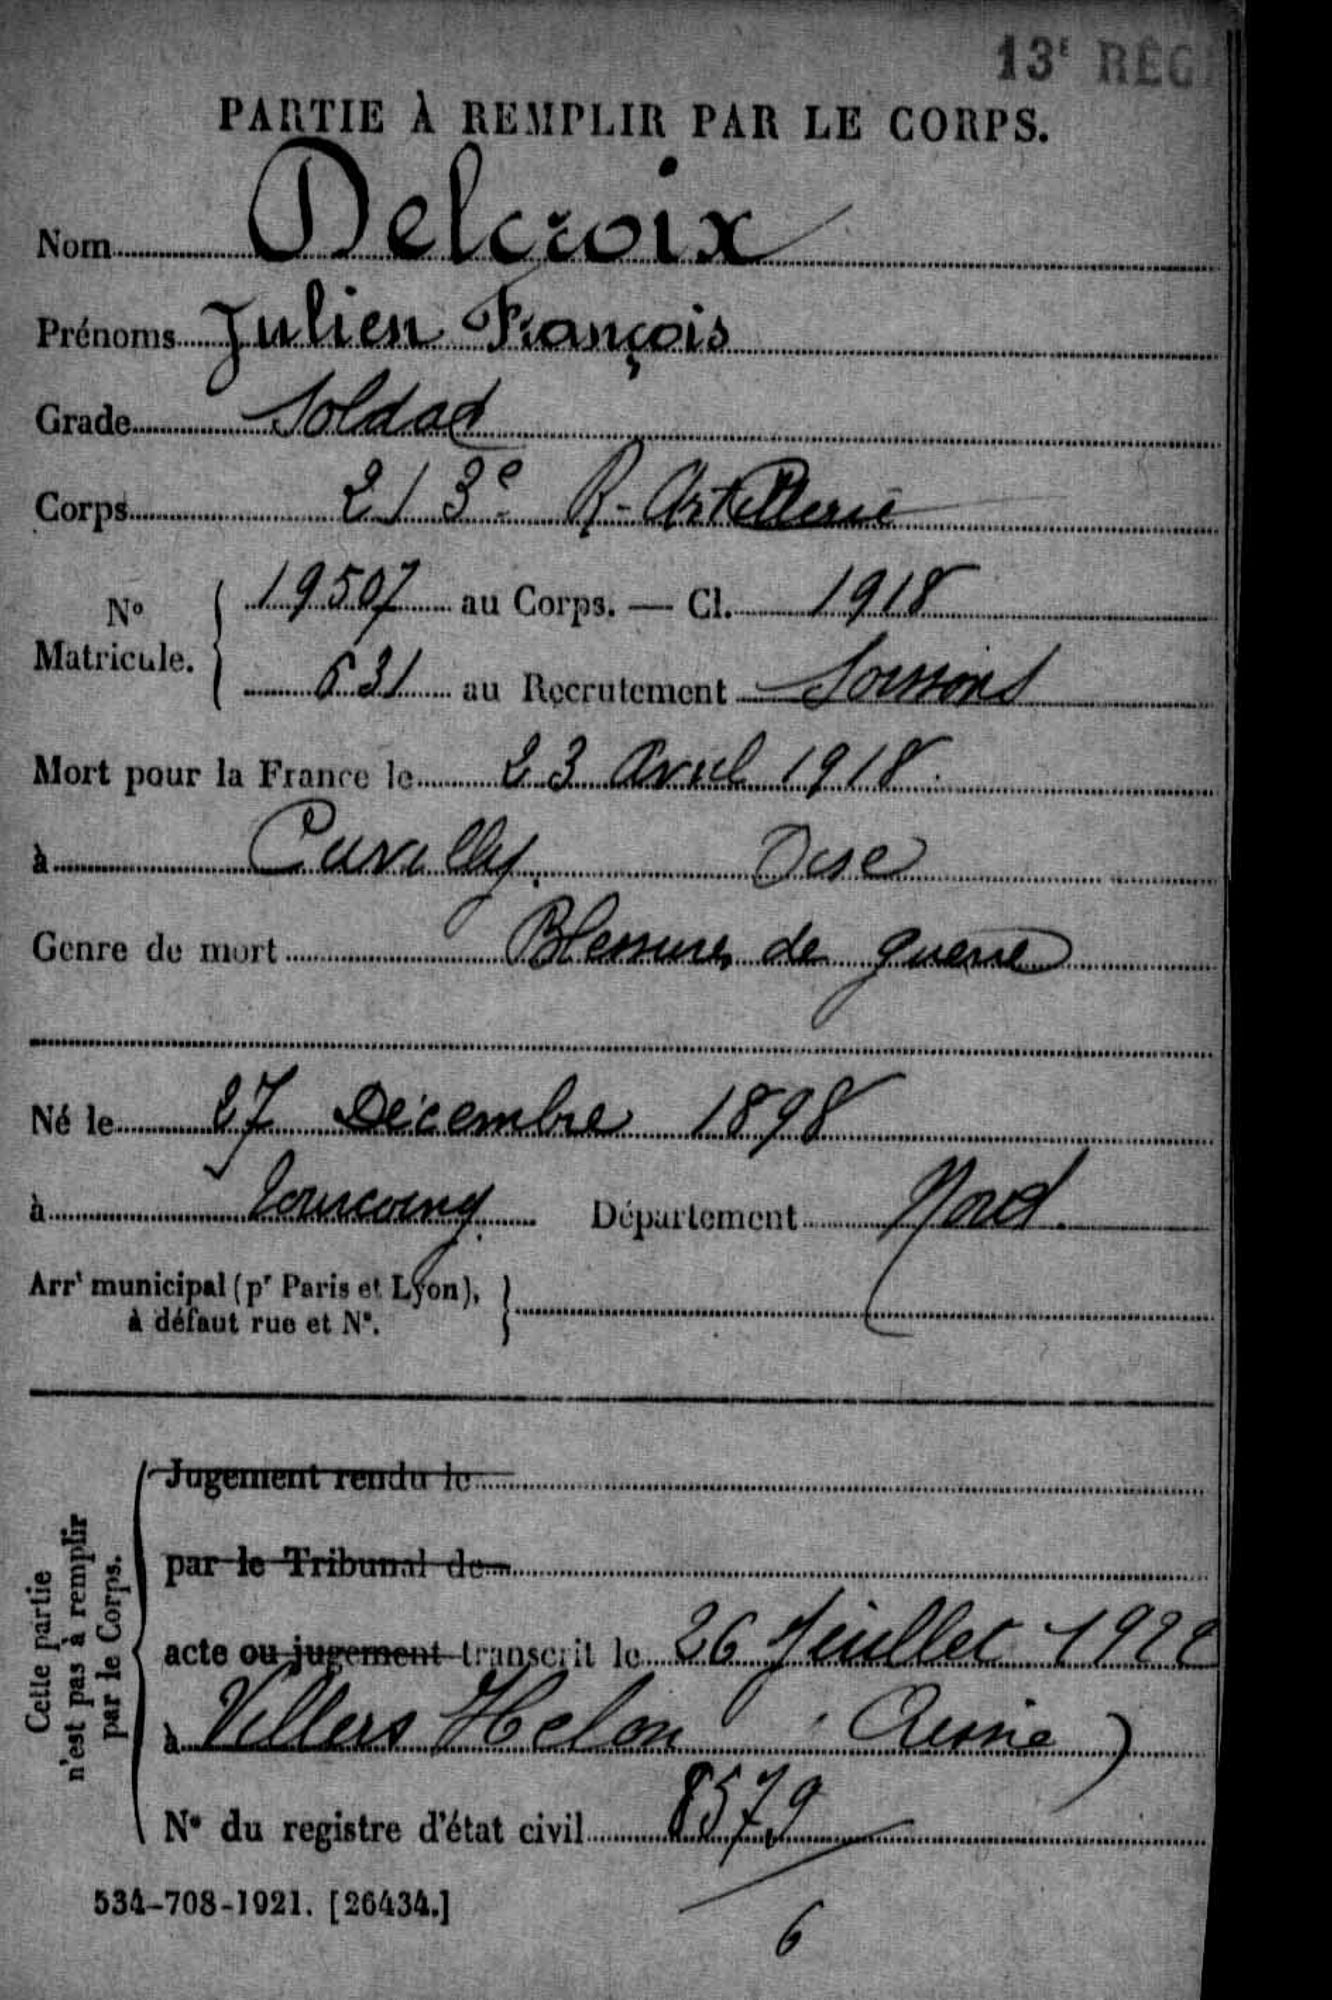 13e RÉG
PARTIE À REMPLIR PAR LE CORPS.
Nom Delcroix
Prénoms Julien François
Grade Soldat
Corps 213e R. Artillerie
No Matricule. 19507 au Corps. — Cl. 1918
631 au Recrutement Soissons
Mort pour la France le 23 Avril 1918.
à Cuvilly. Oise
Genre de mort Blessures de guerre
Né le 27 Décembre 1898
à Tourcoing. Département Nord.
Arrt municipal (pr Paris et Lyon),
à défaut rue et No.
Cette partie
n'est pas à remplir
par le Corps.
Jugement rendu le
par le Tribunal de
acte ou jugement transcrit le 26 Juillet 1922
à Villers Helon (Aisne)
No du registre d'état civil 8579
6
534-708-1921. [26434.]